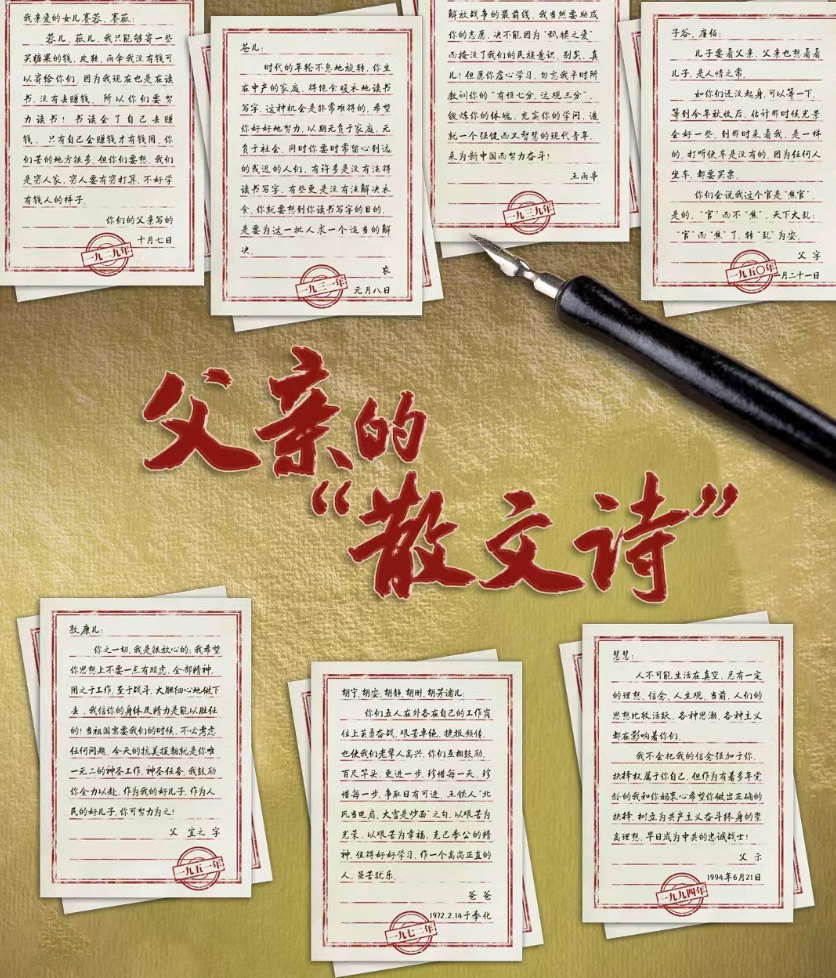 我亲爱的女儿蹇蓉、蹇薇:
蓉儿、薇儿,我只能够寄一些
买糖果的钱,皮鞋,雨伞我没有钱可
以寄给你们,因为我现在也是在读
书,没有去赚钱。所以你们要努
力读书!书读会了自己去赚
钱。只有自己会赚钱才有钱用,你
们苦的地方很多,但你们要想,我们
是穷人家,穷人要有穷打算,不好学
有钱人的样子。
你们的父亲写的
十月七日
一九二九年
苍儿:
时代的年轮不息地旋转,你生
在中产的家庭,得饱食暖衣地读书
写字,这种机会是非常难得的,希望
你好好地努力,以期无负于家庭,无
负于社会,同时你要时常留心到远
的或近的人们,有许多是没有法得
读书写字,有些更是没有法解决衣
食,你就要想到你读书写字的目的,
是要为这一批人求一个适当的解
决。
农
元月八日
一九三一年
解放战争的最前线,我当然要助成
你的志愿,决不能因为“舐犊之爱”
而掩没了我们的民族意识,别矣,真
儿!但愿你虚心学习,勿忘我平时所
教训你的“有恒七分,达观三分”,
锻炼你的体魄,充实你的学问,造
就一个强健而又智慧的现代青年,
来为新中国而努力奋斗!
王雨亭
一九三九年
子谷、廉伯:
儿子要看父亲,父亲也想看看
儿子,是人情之常。
如你们还没起身,可以等一下,
等到今年秋收后,估计那时候光景
会好一些,到那时来看我,是一样
的,打听便车是没有的,因为任何人
坐车,都要买票。
你们会说我这个官是“焦官”,
是的,“官”而不“焦”,天下大乱;
“官”而“焦”了,转“乱”为安。
父字
一月二十一日
一九五〇年
父亲的
“散文诗”
敦康儿:
你之一切,我是很放心的:我希望
你思想上不要一点有顾虑,全部精神,
用之于工作,至于战斗,大胆细心地做下
去,我信你的身体及精力是能以胜任
的!当祖国需要我们的时候,不必考虑
任何问题,今天的抗美援朝就是你唯
一无二的神圣工作,神圣任务,我鼓励
你全力以赴,作为我的好儿子,作为人
民的好儿子,你可努力为之!
父 宜之 字
一九五一年
胡宁、胡安、胡静、胡时、胡芳诸儿:
你们五人在外各在自己的工作岗
位上英勇奋战,艰苦卓绝,捷报频传,
也使我们老辈人高兴,你们互相鼓励,
百尺竿头,更进一步,珍惜每一天,珍
惜每一步,争取日有可进,王铁人“北
风当电扇,大雪是炒面”之句,以艰苦为
光荣,以艰苦为幸福,克己奉公的精
神,值得好好学习,作一个高尚正直的
人,虽苦犹乐。
爸爸
1972.2.14于奉化
一九七二年
慧慧:
人不可能生活在真空,总有一定
的理想、信念、人生观,当前,人们的
思想比较活跃,各种思潮、各种主义
都在影响着你们。
我不会把我的信念强加于你,
抉择权属于你自己,但作为有着多年党
龄的我和你妈衷心希望你做出正确的
抉择,树立为共产主义奋斗终身的崇
高理想,早日成为中共的忠诚战士!
父 示
1994年6月21日
一九九四年